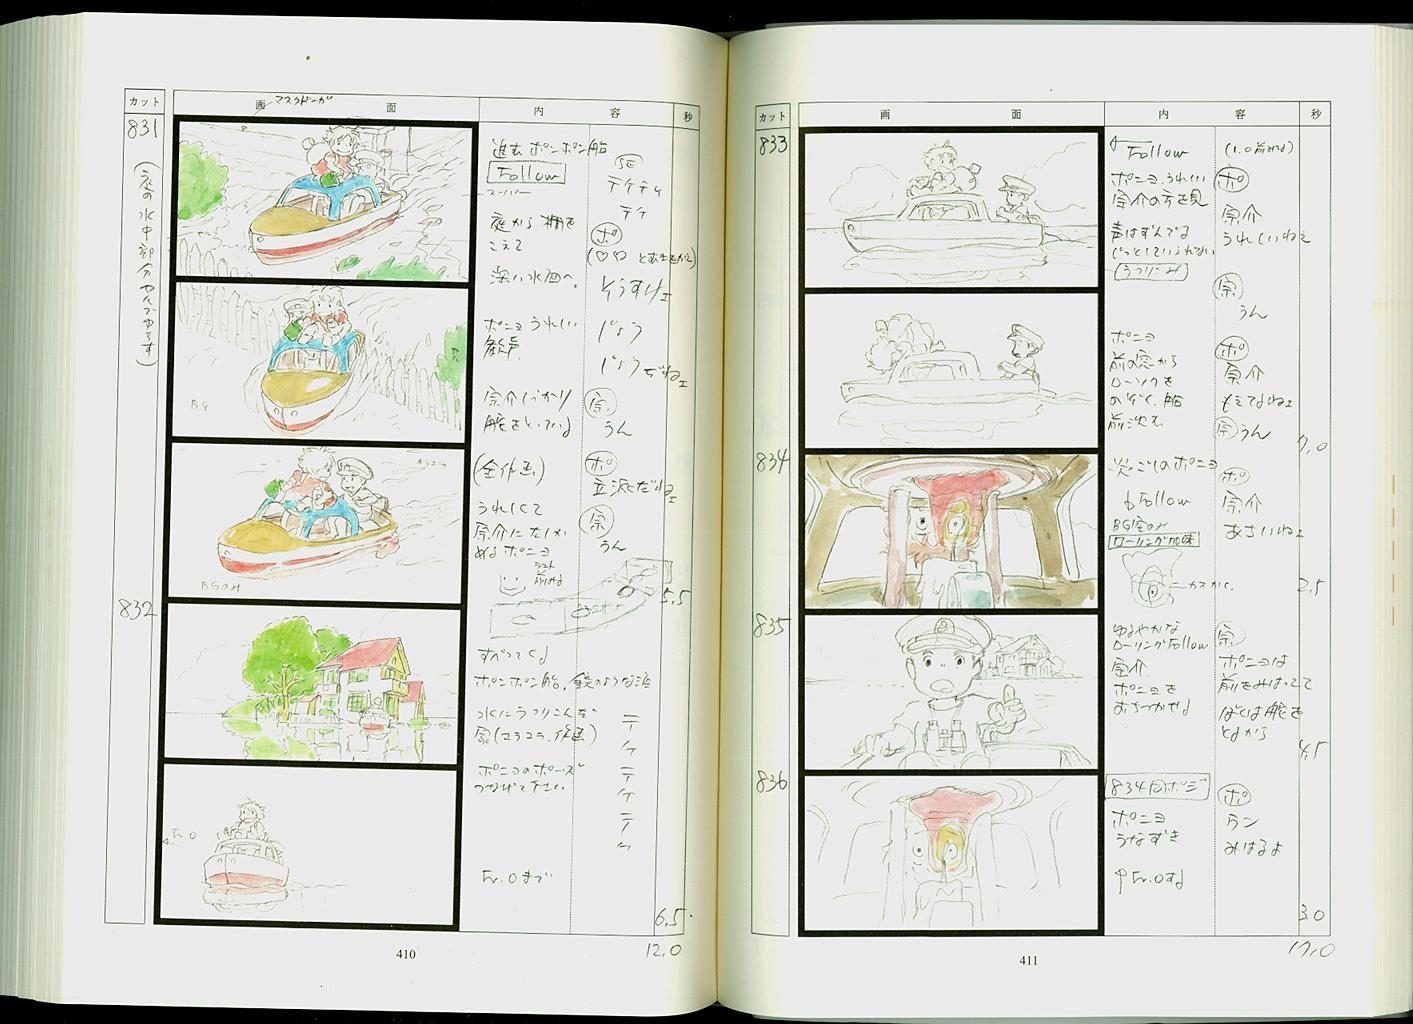 カット
画 面
マスクドーガ
内 容
秒
831
(庭の水中部分
進む ポンポン船
Follow
庭から 柵を
こえて
深い水面へ。
ポニョ うれしい
歓声
宗介しっかり
舵をとっている
SE
テケテケ
テケ
ポ
そうすけェ
じょう
じょうずねェ
宗
うん
(全作画)
うれしくて
宗介に
ポニョ
ポ
宗
うん
BG
BGのみ
5.5
832
すべってくる
ポンポン船。鏡のような海
水にうつりこんだ
家(ユラユラ、作画)
ポニョのポーズ
つなげて下さい
テ
ケ
テ
ケ
テ
ケ
Fr.O
Fr.Oまで
6.5
410
12.0
カット
画 面
内 容
秒
833
Follow
ポニョ、うれしい
宗介の方を見
声はずんでる
じっとしていられない
(うつりこみ)
ポ
宗介
うれしいねェ
宗
うん
ポニョ
前の窓から
ローソクを
のぞく、船
前沈む
ポ
宗介
もえてるねェ
宗 うん
7.0
834
炎ごしのポニョ
Follow
BG室のみ
ローリング加味
ポ
宗介
あさいねェ
2.5
835
ゆるやかな
ローリングFollow
宗介
ポニョを
おちつかせる
宗
ポニョは
前をみはってて
ぼくは舵を
とるから
4.5
836
834同ポジ
ポニョ
うなずき
Fr.Oする
ポ
ウン
みはるよ
3.0
411
17.0